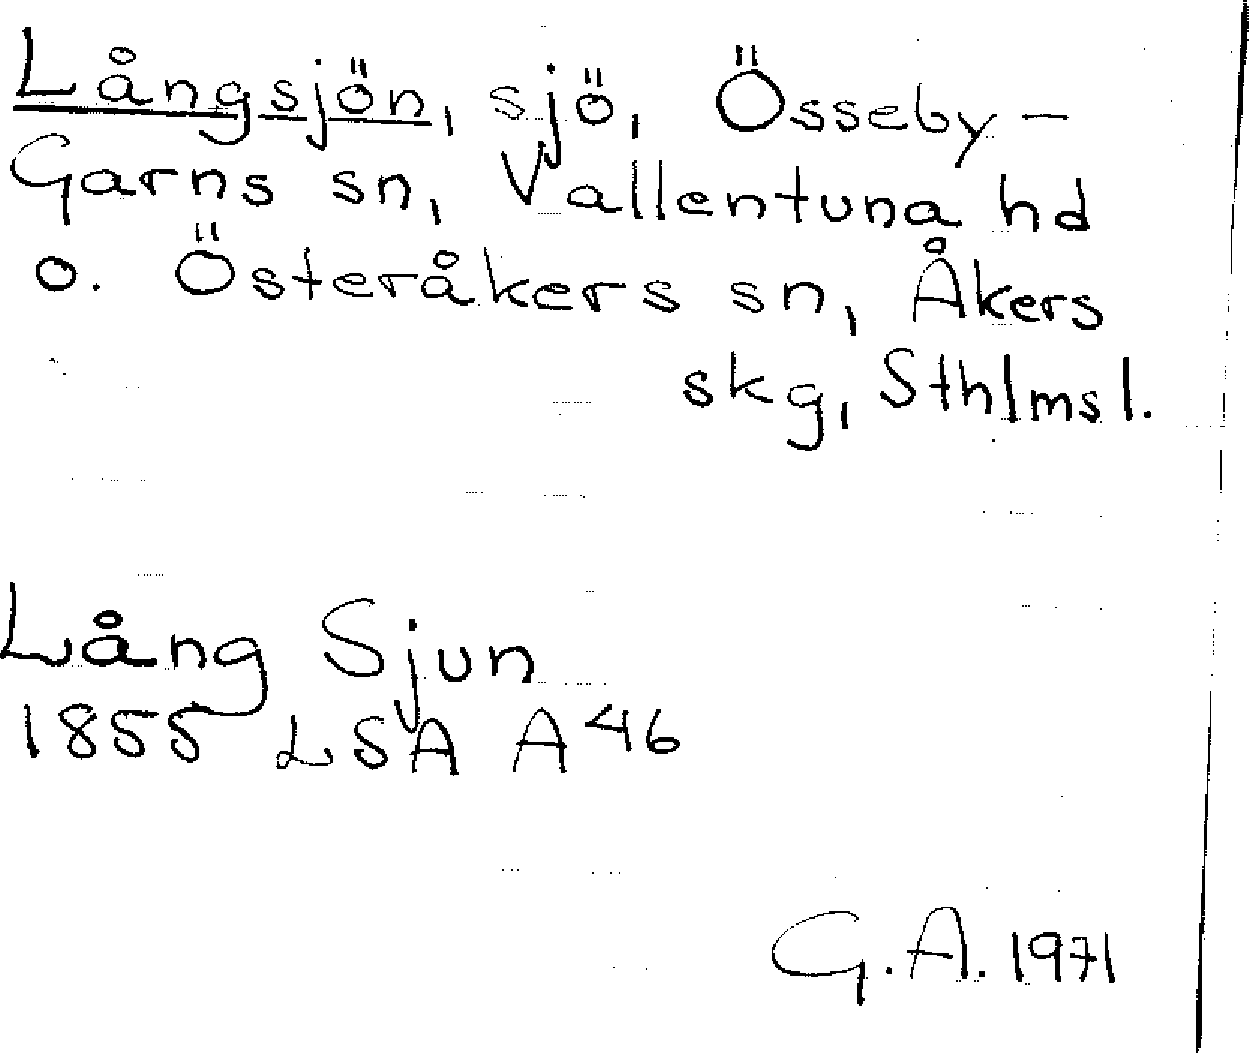 Långsjön, sjö, Össeby-
Garns sn, Vallentuna hd
o. Österåkers sn, Åkers
skg, Sthlmsl.
Lång Sjun
1855 LSA A46
G.A. 1971